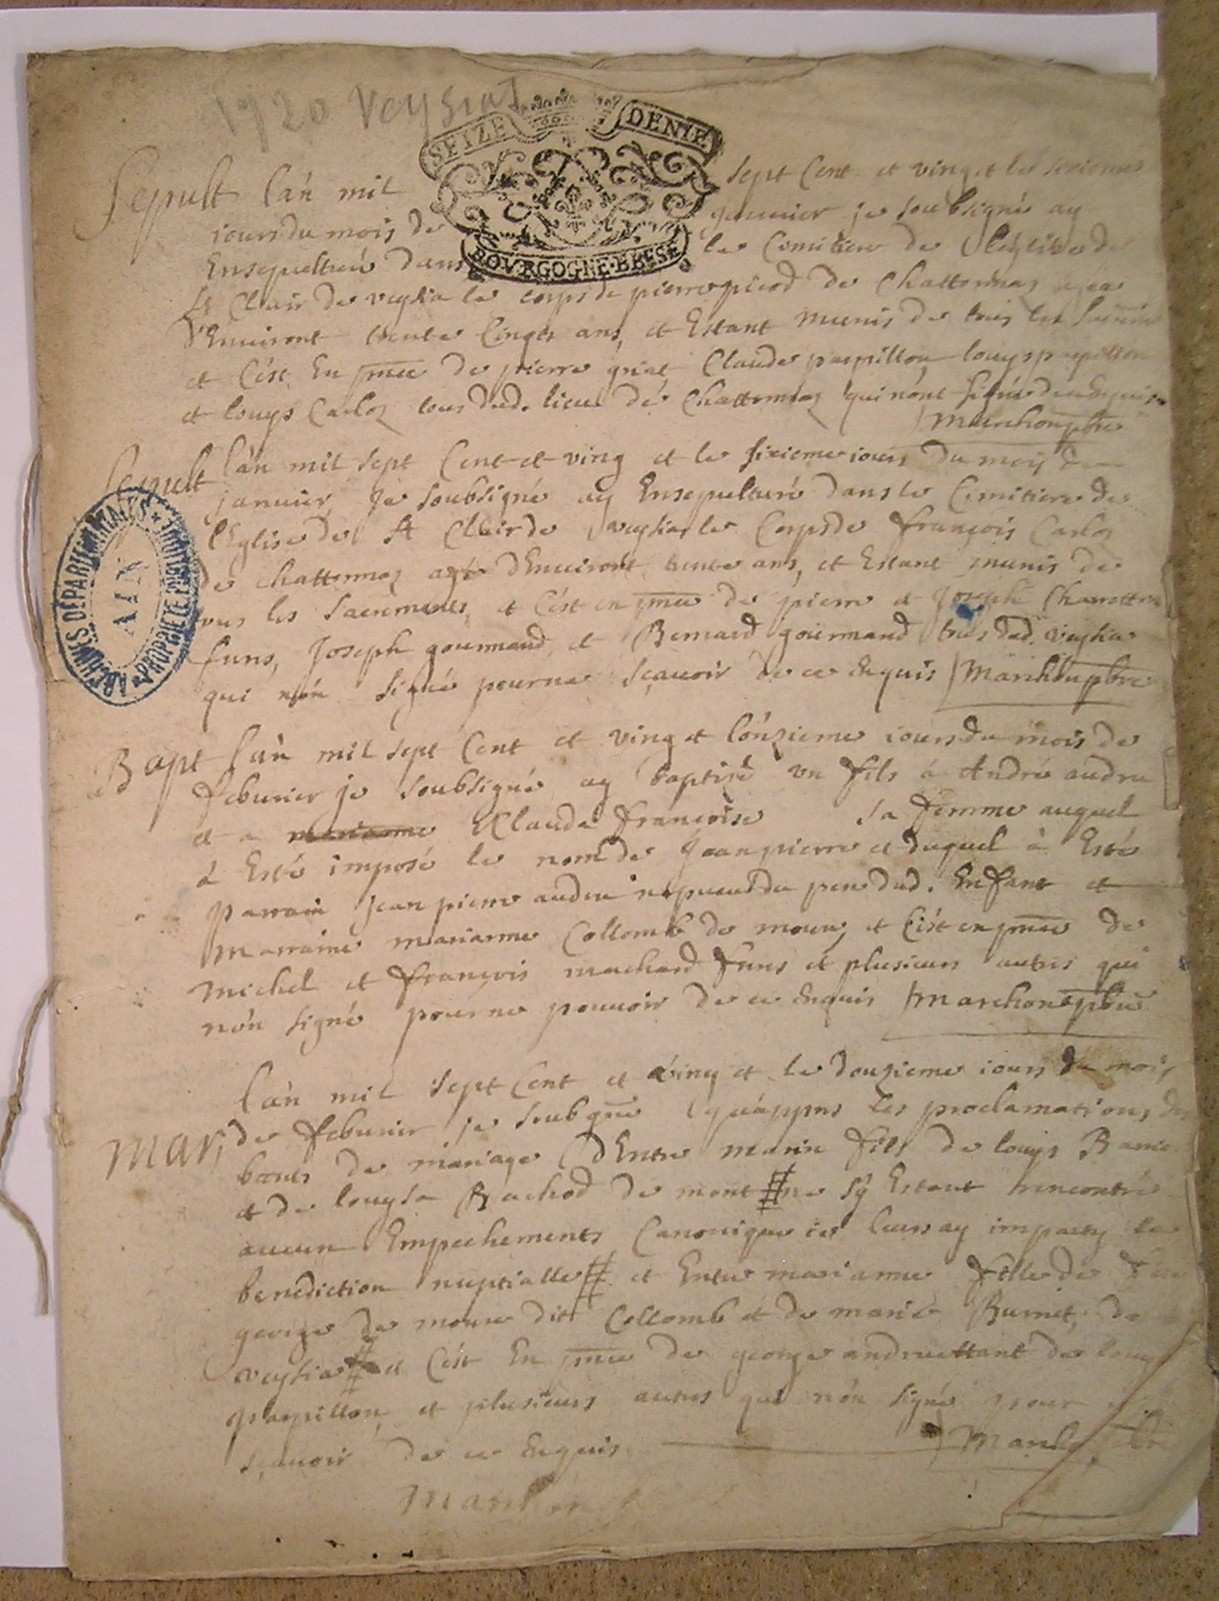 1720 Veyziat
SEIZE DENIE
BOVRGOGNE·BRESSE
Sepult lan mil sept Cent et vingt et le sixieme
iours du mois de janvier je soubsigné ay
Ensepulturé dans le Cemitiere de l'eglise de
St Clair de veyzia le corps de pierre de Chattonnaz
d'Enuiront trente Cinq ans, et Estant munis de tous les
et C'est En pnce de pierre Claude papillon, louys papillon
et louys Carloz tous dud. lieu de Chattonnaz qui n'ont signé de ce Enquis
Marchon pbre
Sepult lan mil sept Cent et ving et le sixieme iours du mois de
janvier Je soubsigné ay Ensepulturé dans le Cemitiere de
l'Eglise de St Clair de veyzia le Corps de françois Carloz
de Chattonnaz agé d'Enuiront trente ans, et Estant munis de
tous les sacrements, et C'est en pnce de pierre et Joseph
funs, Joseph gourmand, et Bernard gourmand tous dud. veyzia
qui n'on signé pour ne sçauoir de ce Enquis Marchon pbre
ARCHIVES DÉPARTEMENTALES
AIN
PROPRIÉTÉ PUBLIQUE
Bapt lan mil sept Cent et ving et l'onzieme iours du mois de
feburier je soubsigné ay baptizé un fils à André audru
et a marianne Clauda françoise sa femme auquel
à Esté imposé le nom de Jean pierre et duquel à Esté
parrain Jean pierre audru dud. Enfant et
Marraine marianne Collomb de mour, et C'est en pnce de
Michel et françois machard funs et plusieurs autres qui
n'on signé pour ne pouuoir de ce Enquis Marchon pbre
lan mil sept Cent et ving et le douzieme iours du mois
Mar, de feburier je soubsigné qu'appres les proclamations des
bans de mariage d'Entre marin fils de louys
et de louysa Bachod de mont # ne s'y Estant rencontré
aucun Empechements Canonique ie leurs ay imparty la
benediction nuptialle # et Entre marianne fille de
george de moure dit Collomb et de marie Burnet, de
veyzia # et C'est En pnce de george de louys
papillon, et plusieurs autres qui n'on signé pour
sçauoir de ce Enquis
Marchon